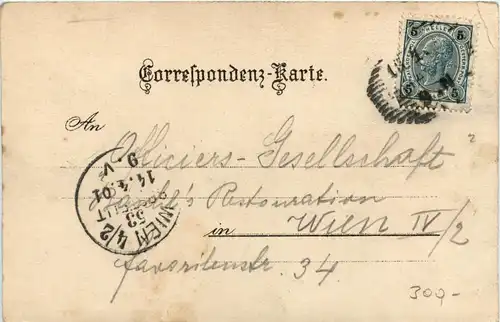 5 5
HELLER
5 5
Correspondenz-Karte.
An
Officiers-Gesellschaft
Restauration
in Wien IV/2
Favoritenstr. 34
WIEN 4/2
53
BESTELLT
14.4.01
9.V
300-